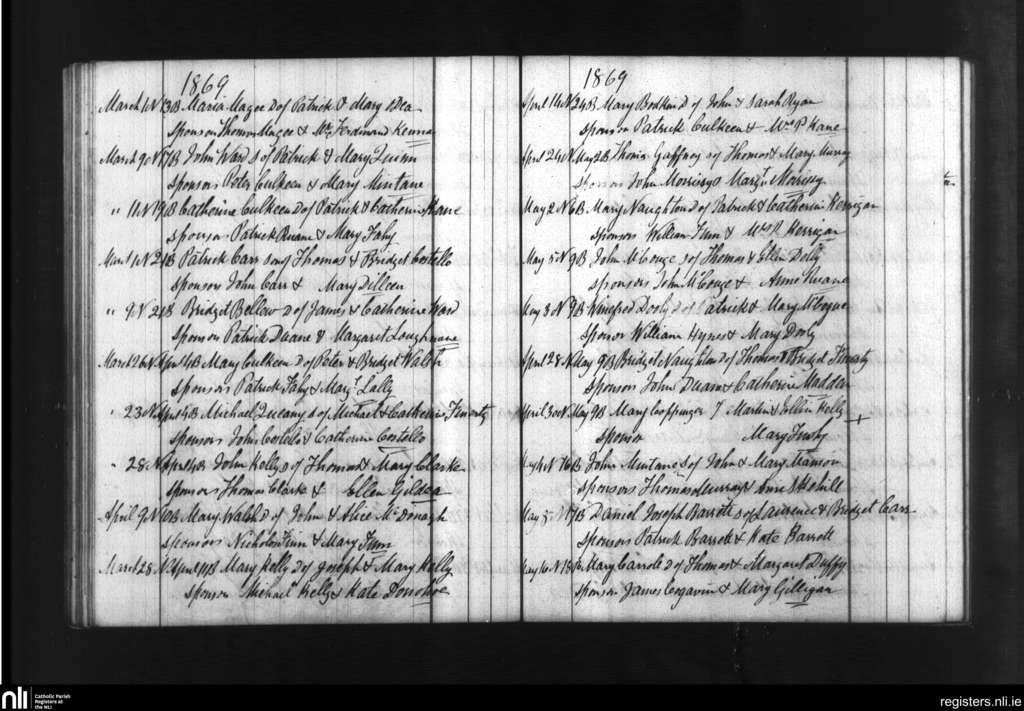 1869
March 1 N 13 B Maria Magee D of Patrick & Mary ODea
Sponson Thomas Magee & Mrs Ferdinand Kenna
March 9 N 17 B John Ward S of Patrick & Mary Quinn
Sponsors Peter Culkeen & Mary Mintane
" 11 N 19 B Catherine Culkeen D of Patrick & Catherine Kane
Sponsor Patrick Ruane & Mary Fahy
21 B Patrick Carr son of Thomas & Bridget Costello
Sponsors John Carr & Mary Dilleen
" 9 N 21 B Bridget Bellew D of James & Catherine Ward
Sponson Patrick Duane & Margaret Loughnane
March 26 N April 4 B Mary Culkeen D of Peter & Bridget Walsh
Sponsors Patrick Fahy & Mary Lally
" 23 N April 4 B Michael S of Michael & Catherine
Sponsors John Costello & Catherine Costello
" 28 N April 4 B John Kelly S of Thomas & Mary Clarke
Sponsors Thomas Clarke & Ellen Gildea
April 9 N 10 B Mary Walsh D of John & Alice McDonagh
Sponsors Nicholas Finn & Mary Finn
March 28 N April 11 B Mary Kelly D of Joseph & Mary Kelly
Sponson Michael Kelly & Kate Donohoe
1869
April 14 N 24 B Mary Bodkin D of John & Sarah Ryan
Sponson Patrick Culkeen & Mrs P Kane
April 24 N May 2 B Thomas Gaffney S of Thomas & Mary Murray
Sponsors John Morrissy & Mary Morrissy
May 2 N 6 B Mary Naughton D of Patrick & Catherin Kerrigan
Sponsors William Finn & Mrs P Kerrigan
May 5 N 9 B John S of Thomas & Ellen Dolly
Sponsors John & Anne Ruane
May 8 N 9 B Winefred Dooly D of Patrick & Mary
Sponsor William Hynes & Mary Dooly
April 28 N May 9 B Bridget Naughton D of Thomas & Bridget
Sponson John Duane & Catherine Madden
April 30 N May 9 B Mary Coppinger Martin & Kelly
Sponsor Mary
16 B John Mintane S of John & Mary
Sponsors Thomas Murray & Anne
May 5 N 17 B Daniel Joseph Barrett S of Laurence & Bridget Carr
Sponsors Patrick Barrett & Kate Barrett
May 16 N 18 B Mary Carroll D of Thomas & Margaret Duffy
Sponson James & Mary Gilligan
nli
Catholic Parish
Registers at
the NLI
registers.nli.ie